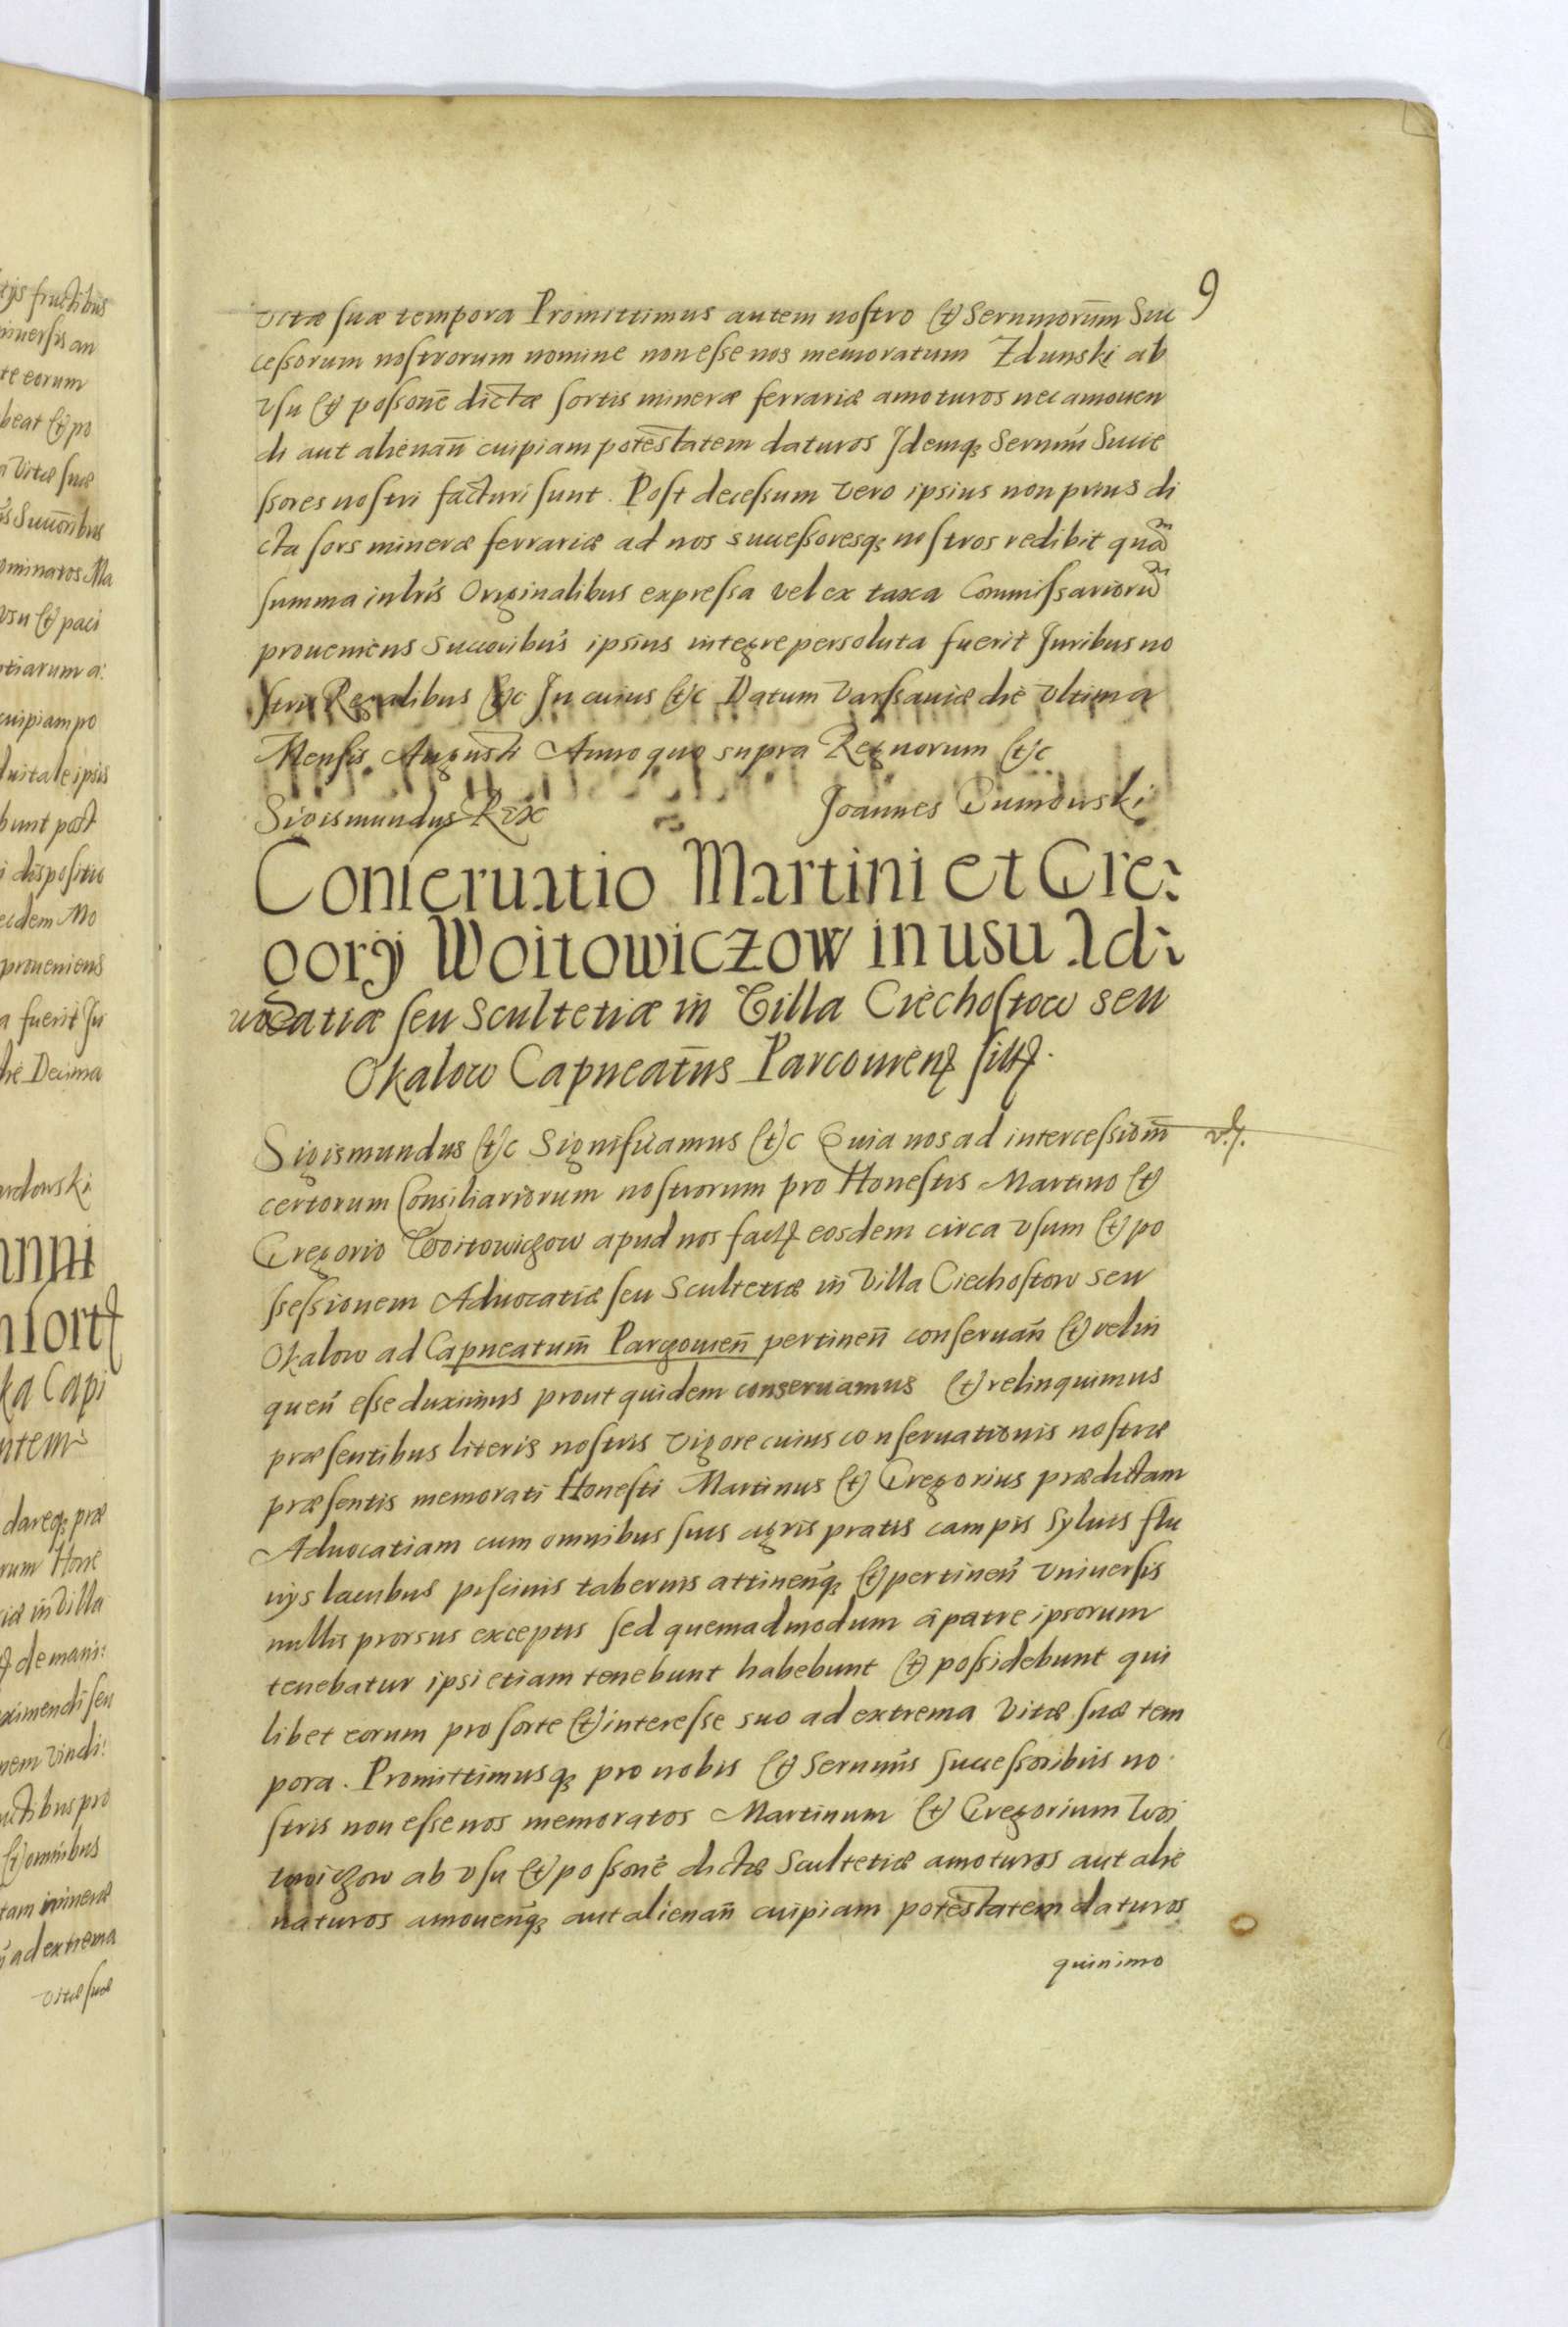 9
vitæ suæ tempora Promittimus autem nostro et Sernmorum̄ Suc
cessorum nostrorum nomine non esse nos memoratum Zdunski ab
vsu et possonē dictæ sortis mineræ ferrariæ amoturos nec amouen
di aut alienan̄ cuipiam potestatem daturos Idemq3 Sernmi Succe
ssores nostri facturi sunt. Post decessum vero ipsius non prius di
cta sors mineræ ferrariæ ad nos successoresq3 nostros redibit quam
summa in lris Originalibus expressa vel ex taxa Commissariorum
proueniens Succoribus ipsius integre persoluta fuerit Juribus no
stris Regalibus etc In cuius etc Datum Varssauiæ die vltima
Mensis Augusti Anno quo supra Regnorum etc
Sigismundus Rex Joannes
Conseruatio Martini et Gre:
gorij Woitowiczow in usu Ad:
uocatiæ seu Scultetiæ in Villa Ciechostow seu
Okalow Capneatus̄ Parcouien sitæ.
Sigismundus etc Significamus etc Quia nos ad intercessiom̄
certorum Consiliariorum nostrorum pro Honestis Martino et
Gregorio Woitowiczow apud nos factam eosdem circa vsum et po
ssessionem Aduocatiæ seu Scultetiæ in Villa Ciechostow seu
Okalow ad Capneatum̄ Parczouien̄ pertinen̄ conseruan̄ et relin
quen̄ esse duximus prout quidem conseruamus et relinquimus
præsentibus literis nostris vigore cuius conseruationis nostræ
præsentis memorati Honesti Martinus et Gregorius prædictam
Aduocatiam cum omnibus suis agris pratis campis syluis flu
uijs lacubus piscinis tabernis attinen̄q3 et pertinen̄ vniuersis
nullis prorsus exceptis sed quemadmodum à patre ipsorum
tenebatur ipsi etiam tenebunt habebunt et possidebunt qui
libet eorum pro sorte et interesse suo ad extrema vitæ suæ tem
pora. Promittimusq3 pro nobis et Sernmis Successoribus no
stris non esse nos memoratos Martinum et Gregorium Woi
towiczow ab vsu et possonē dictæ Scultetiæ amoturos aut alie
naturos amouen̄q3 aut alienan̄ cuipiam potestatem daturos
quinimo